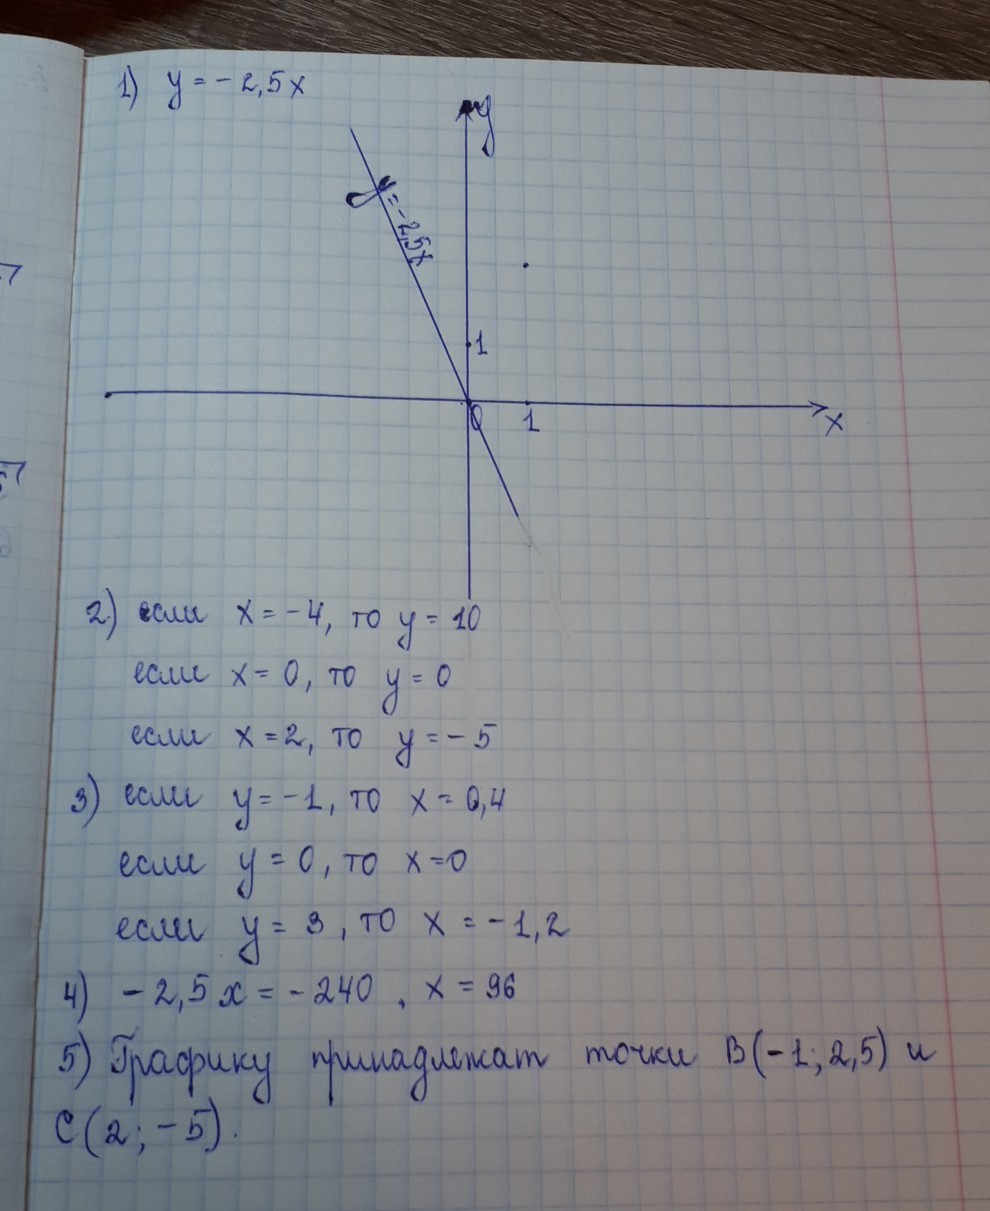 1) y = -2,5x
y
y = -2,5x
1
0
1
x
2) если x = -4, то y = 10
если x = 0, то y = 0
если x = 2, то y = -5
3) если y = -1, то x = 0,4
если y = 0, то x = 0
если y = 3, то x = -1,2
4) -2,5x = -240, x = 96
5) Графику принадлежат точки B(-1; 2,5) и
C(2; -5).